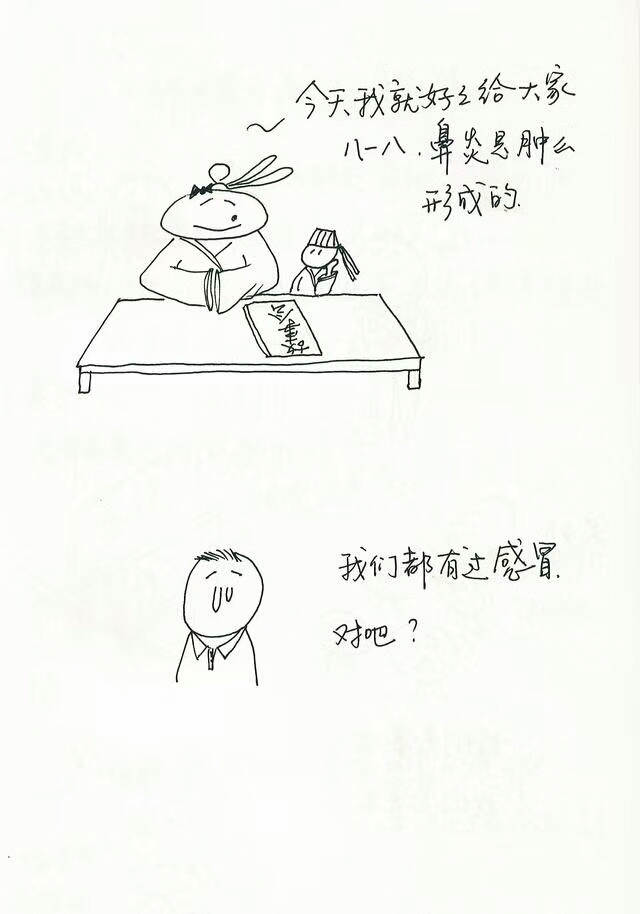 今天我就好好给大家
八一八，鼻炎是肿么
形成的.
故事会
我们都有过感冒.
对吧？